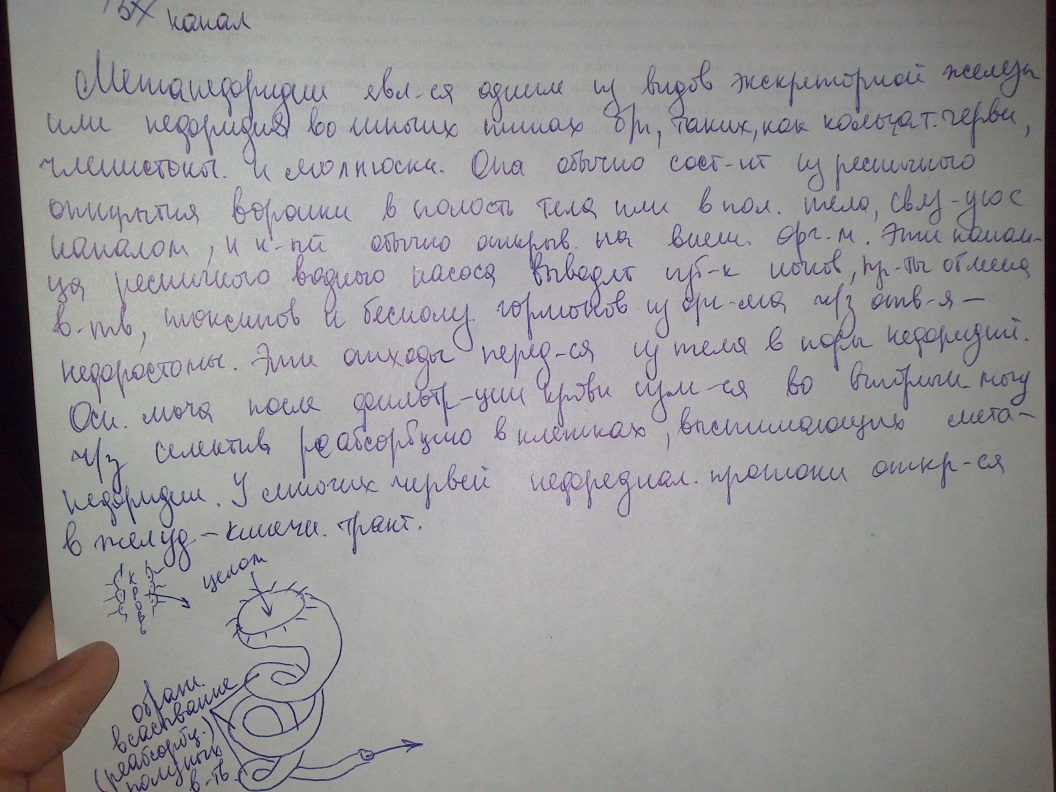 канал
Метанефридии явл-ся одним из видов экскреторной железы
или нефридия во многих типах бп, таких, как кольчат. черви,
членистоны. и моллюски. Она обычно сост-ит из ресничного
открытия воронки в полость тела или в пол. тело, связ-ую с
каналом, и к-рй обычно открыв. на внеш. орг-м. Эти канал-
ца ресничного водного насоса выводят изб-к ионов, пр-ты обмена
в-тв, токсинов и бесполу. гормонов из орг-ма ч/з отв-я –
нефростомы. Эти отходы перед-ся из тела в поры нефридий.
Осн. моча после фильтр-ции крови изм-ся во вторичн. мочу
ч/з селектив. реабсорбцию в клетках, выстилающих мета-
нефридии. У многих червей нефридиал. протоки откр-ся
в желуд-кишечн. тракт.
кровь
целом
обратн.
всасывание
(реабсорбц.)
полезных
в-тв